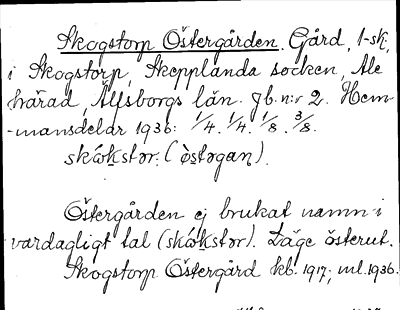 Skogstorp Östergården. Gård, 1-sk,
i Skogstorp, Skepplanda socken, Ale
härad, Älfsborgs län. Jb.n:r 2. Hem-
-mansdelar 1936: 1/4. 1/4. 1/8. 3/8.
skɷ́kstɷr. (òstəgan).
Östergården ej brukat namn i
vardagligt tal (skɷ́kstɷr). Läge österut.
Skogstorp Östergård kb. 1917; ml. 1936.